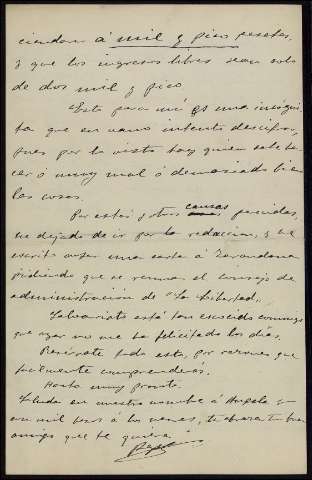 ciendan á mil y pico pesetas,
y que los ingresos libres sean solo
de dos mil y pico
Esto para mí es una incógni-
ta que en vano intento descifrar,
pues por lo visto hay quien sabe ha-
cer ó muy mal ó demasiado bien
las cosas.
Por estas y otras causas parecidas,
he dejado de ir por la redaccion, y he
escrito ayer una carta á Zarandona
pidiendo que se reuna el consejo de
administración de "La Libertad".
Salvarista está tan escocido conmigo
que ayer no me ha felicitado los dias.
Resérvate todo esto, por razones que
facilmente comprenderás.
Hasta muy pronto.
Saluda en nuestro nombre á Angela y
con mil besos á los nenes, te abraza tu buen
amigo que te quiere